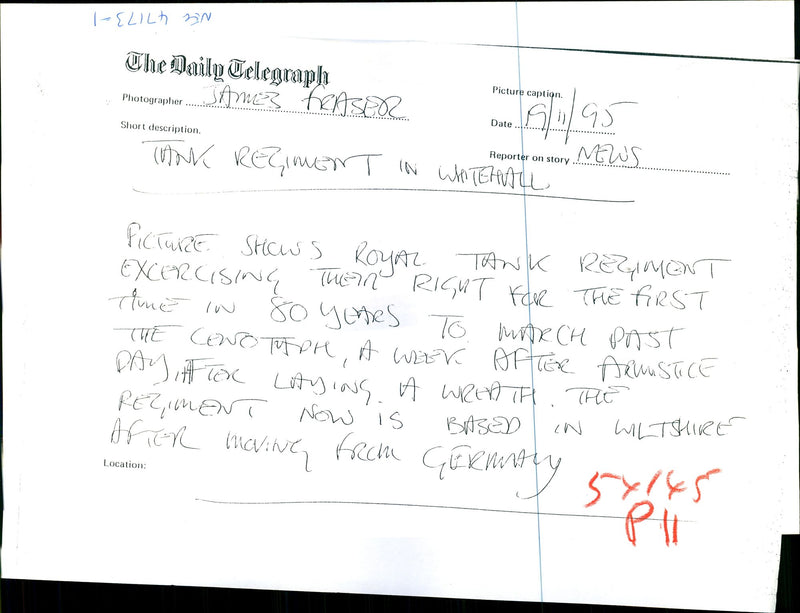 NEC 41173-1
The Daily Telegraph
Photographer JAMES FRASER
Picture caption.
Date 19/11/95
Short description.
Reporter on story NEWS
TANK REGIMENT IN WHITEHALL.
PICTURE SHOWS ROYAL TANK REGIMENT
EXCERCISING THEIR RIGHT FOR THE FIRST
TIME IN 80 YEARS TO MARCH PAST
THE CENOTAPH, A WEEK AFTER ARMISTICE
DAY, AFTER LAYING A WREATH. THE
REGIMENT NOW IS BASED IN WILTSHIRE
AFTER MOVING FROM GERMANY
Location:
5x145
P11